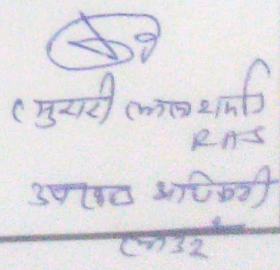 (मुरारी लाल शर्मा
RAS
उपखण्ड अधिकारी